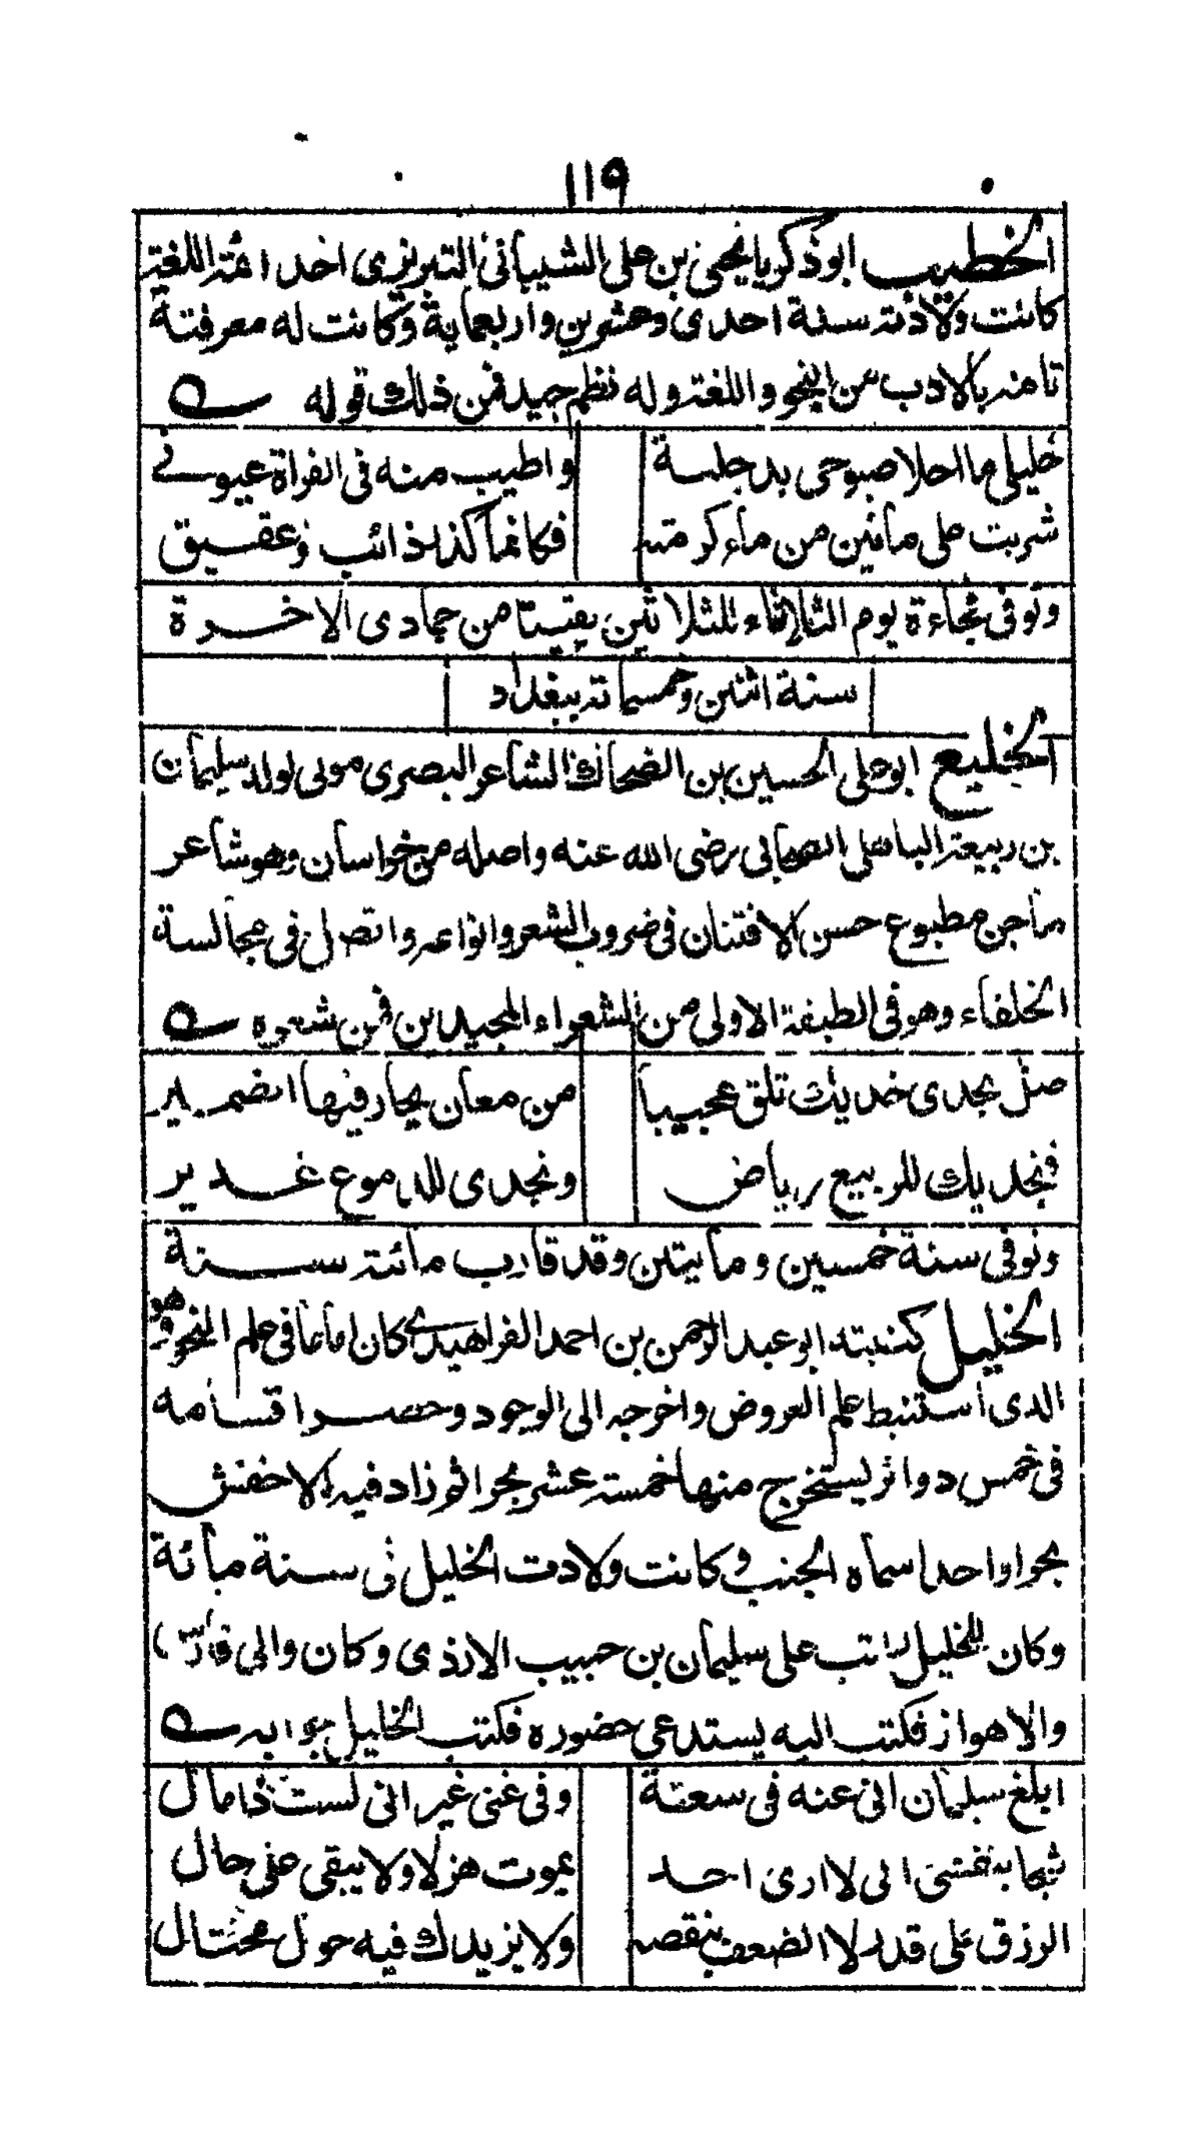 ١١٩
الخطيب ابو ذكريا يحيى بن على الشيبانى التبريزى احد ائمة اللغة
كانت ولادته سنة احدى وعشرين واربعماية وكانت له معرفتة
تامه بالادب من النحو واللغة وله نظم جيد فمن ذلك قوله
خليلى ما احلا صبوحى بدجلسة
واطيب منه فى الفراة عبوقى
شربت على مائين من ماء كرمته
فكانما كذاذائب وعقيق
وتوفى فجاءة يوم الثلاثاء للثلاثين بقيتا من جمادى الاخرة
سنة اثنين وخمسمائة ببغداد
الخليع ابو على الحسين بن الضحاك الشاعر البصرى مولى لولد سليمان
بن ربيعة الباهلى الصحابى رضى الله عنه واصله من خراسان وهو شاعر
ماجن مطبوع حسن الافتنان فى ضروب الشعر وانواعه واتصل فى مجالسة
الخلفاء وهو فى الطبقة الاولى من الشعراء المجيدين فمن شعره
صل بجدى خديك تلق عجيبا
من معان يحار فيها الضمير
فبخديك للربيع رياض
ونجدى للدموع غدير
وتوفى سنة خمسين ومايتين وقد قارب مائة سنة
الخليل كنيته ابو عبد الرحمن بن احمد الفراهيدى كان اماما فى علم النحو وهو
الذى استنبط علم العروض واخرجه الى الوجود وحصر اقسامه
فى خمس دوائر يستخرج منها خمسة عشر بحرا ثم زاد فيه الاخفش
بحرا واحدا سماه الجنب وكانت ولادت الخليل فى سنة مائة
وكان للخليل راتب على سليمان بن حبيب الازدى وكان والى فارس
والاهواز فكتب اليه يستدعى حضوره فكتب الخليل جوابه
ابلغ سليمان انى عنه فى سعتة
وفى غنى غير انى لست ذا مال
شحا بنفسى انى لا ارى احد
يموت هزلا ولا يبقى على حال
الرزق على قدر لا الضعف ينقصه
ولا يزيدك فيه حول محتال